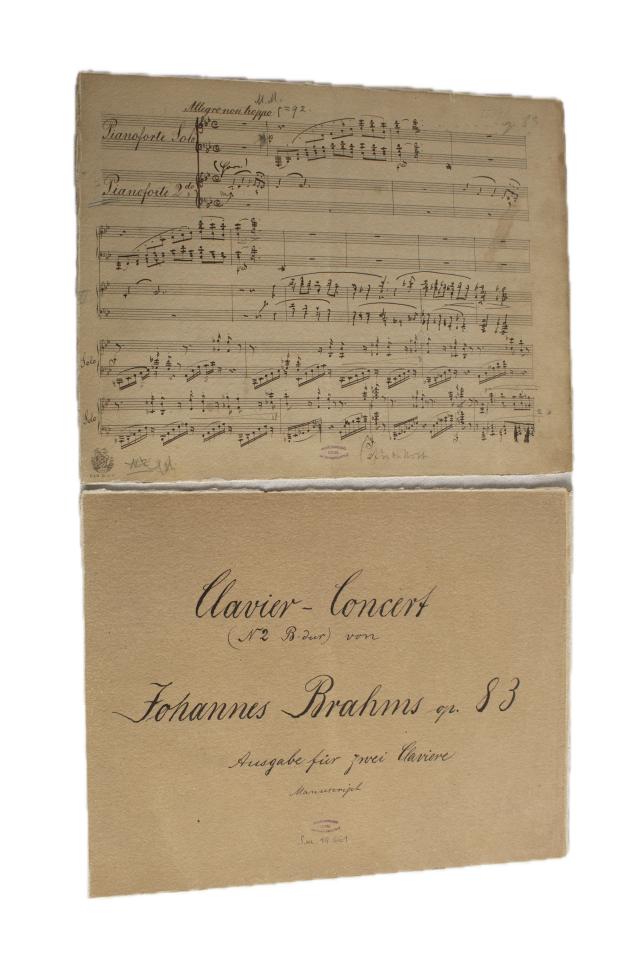 M.M.
Allegro non troppo ♩=92.
Pianoforte Solo
op 83
(Corni)
Pianoforte 2do
Solo
Solo
Clavier-Concert
(N2 B-dur) von
Johannes Brahms op. 83
Ausgabe für zwei Claviere
Manuscript